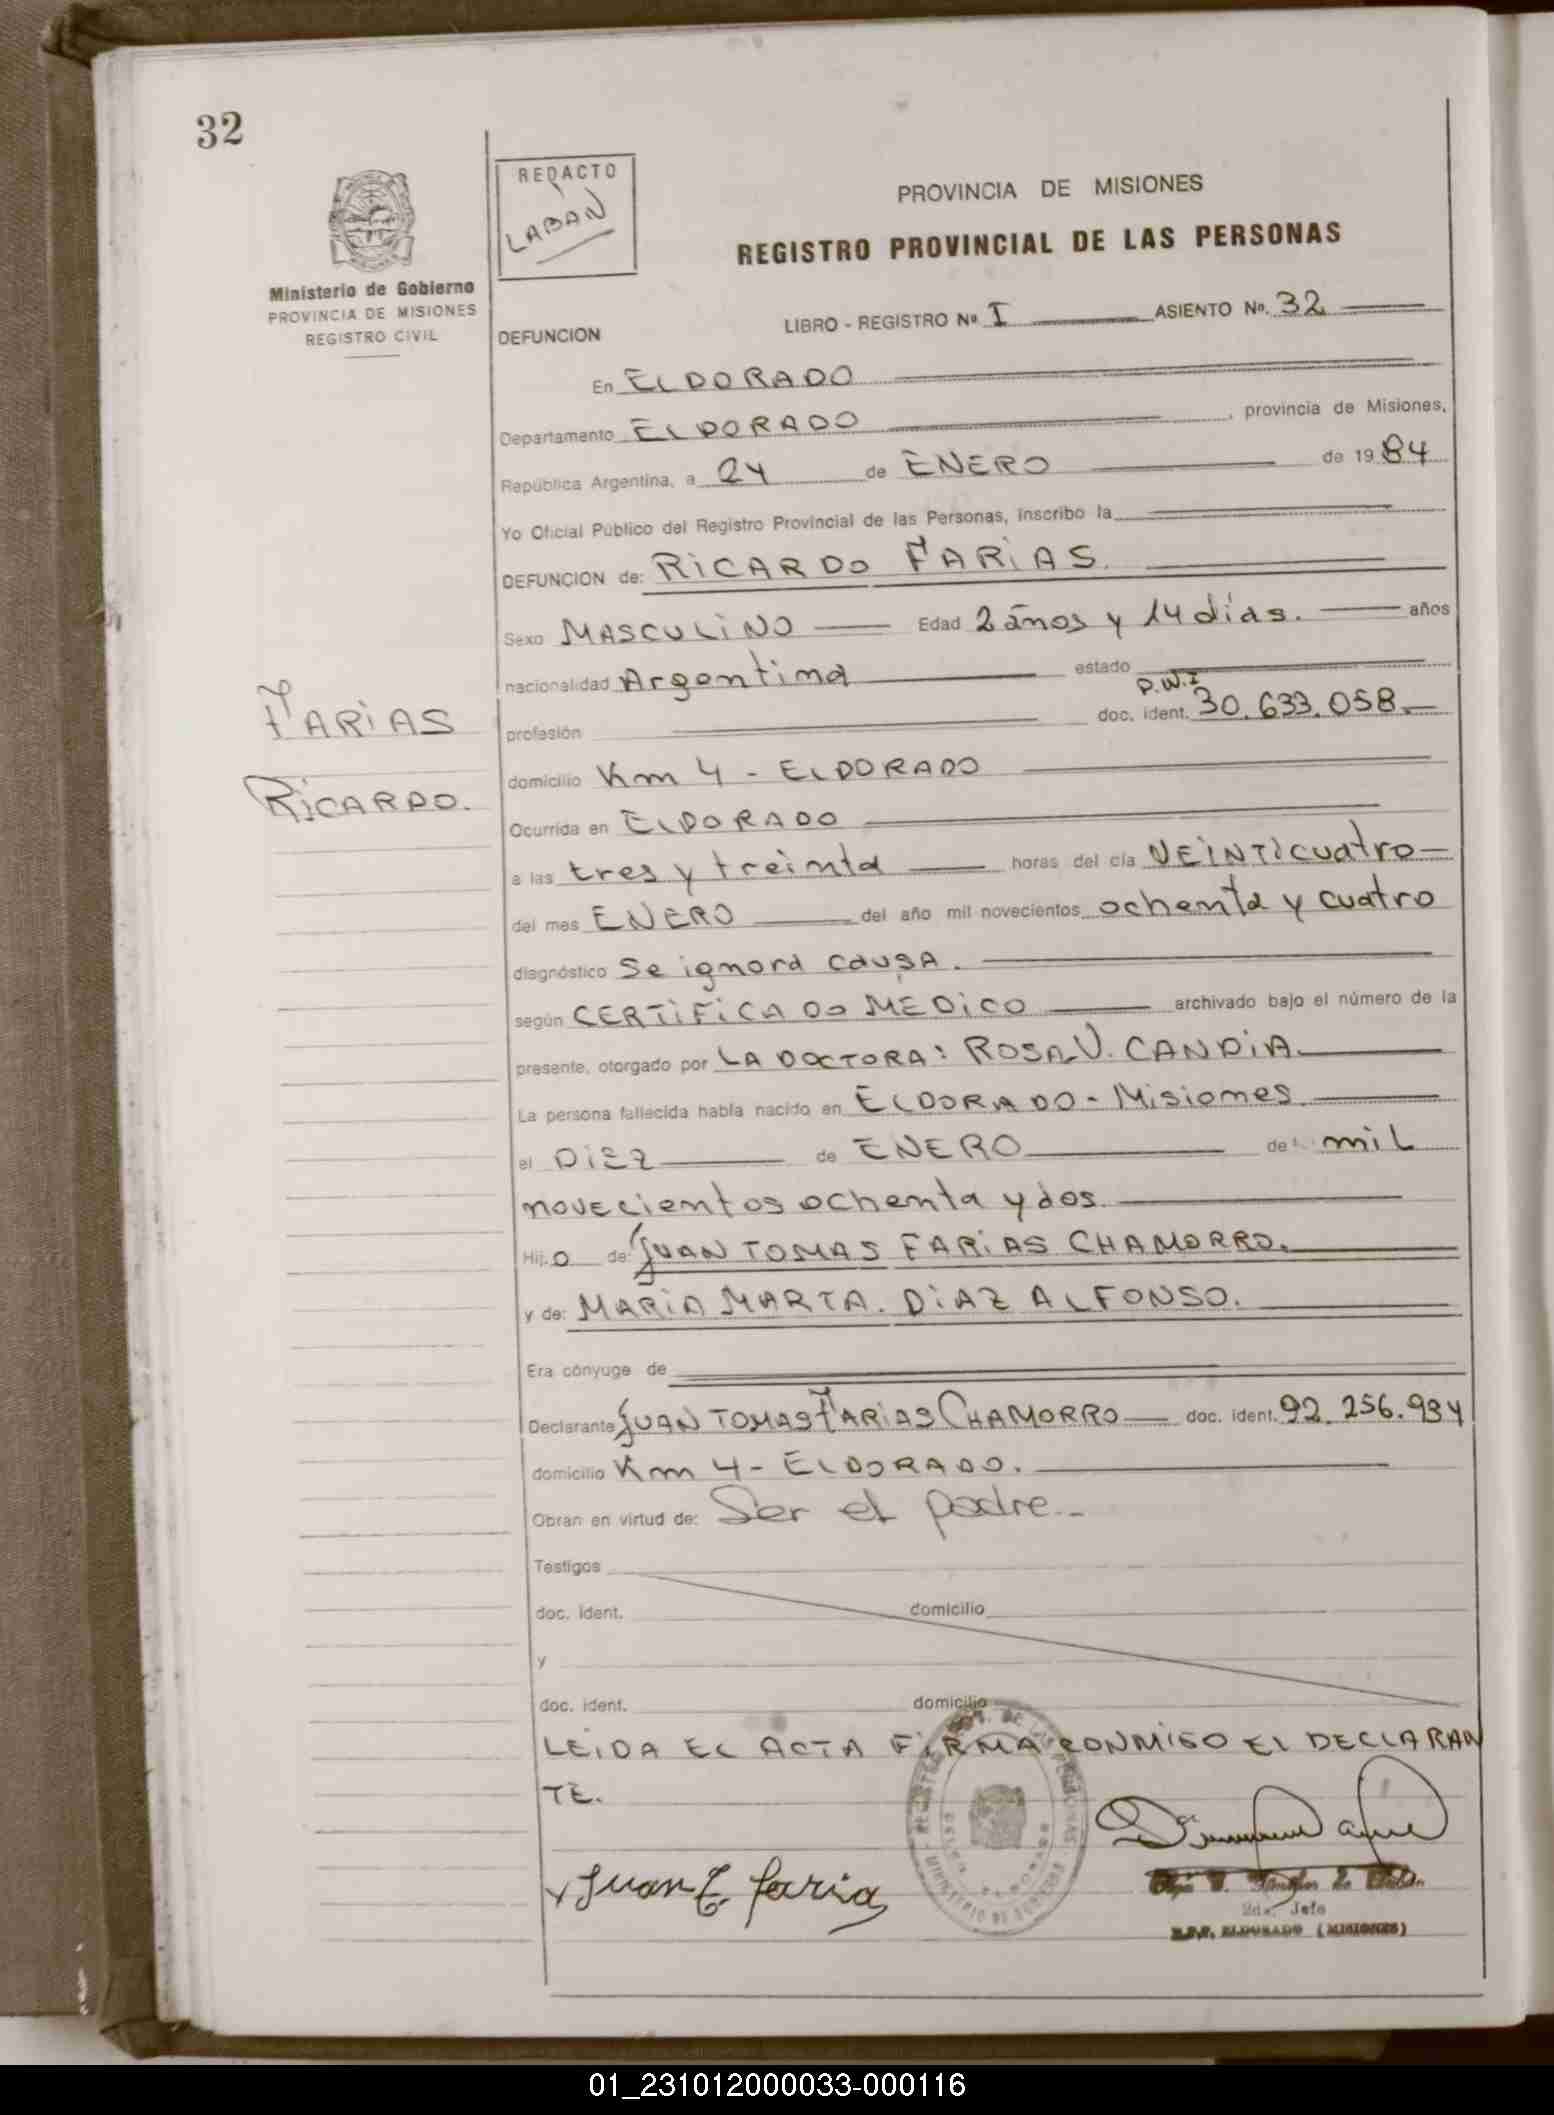 32
REDACTO
LABAN
PROVINCIA DE MISIONES
REGISTRO PROVINCIAL DE LAS PERSONAS
Ministerio de Gobierno
PROVINCIA DE MISIONES
REGISTRO CIVIL
DEFUNCION
LIBRO - REGISTRO Nº I ASIENTO Nº. 32
En ELDORADO
Departamento ELDORADO , provincia de Misiones,
República Argentina, a 24 de ENERO de 1984
Yo Oficial Público del Registro Provincial de las Personas, inscribo la
DEFUNCION de: RICARDO FARIAS.
Sexo MASCULINO Edad 2 años y 14 días. años
nacionalidad Argentina estado
profesión doc. ident. 30.633.058.
FARIAS
RICARDO.
domicilio Km 4 - ELDORADO
Ocurrida en ELDORADO
a las tres y treinta horas del día VEINTICUATRO
del mes ENERO del año mil novecientos ochenta y cuatro
diagnóstico Se ignora causa.
según CERTIFICADO MEDICO archivado bajo el número de la
presente, otorgado por LA DOCTORA: ROSA V. CANDIA.
La persona fallecida había nacido en ELDORADO - Misiones.
el DIEZ de ENERO de mil
novecientos ochenta y dos.
Hij o de: JUAN TOMAS FARIAS CHAMORRO.
y de: MARIA MARTA. DIAZ ALFONSO.
Era cónyuge de
Declarante JUAN TOMAS FARIAS CHAMORRO doc. ident. 92.256.934
domicilio Km 4 - ELDORADO.
Obran en virtud de: Ser el padre.-
Testigos
doc. ident. domicilio
y
doc. ident. domicilio
LEIDA EL ACTA FIRMA CONMIGO EL DECLARAN
TE.
Juan T. faria
2da. Jefe
R.P.P. ELDORADO (MISIONES)
01_231012000033-000116